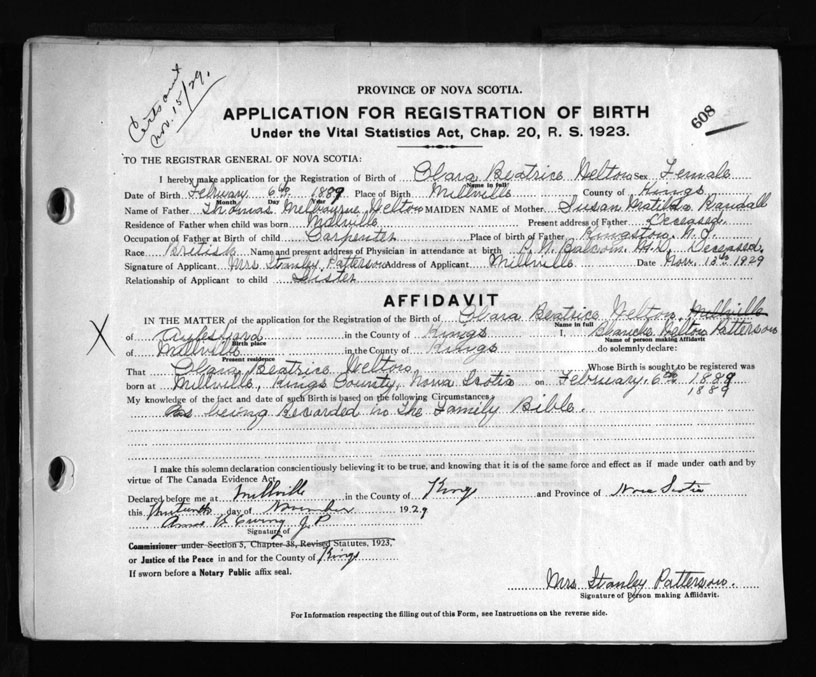 Certs out
Nov. 15/29.
608
PROVINCE OF NOVA SCOTIA.
APPLICATION FOR REGISTRATION OF BIRTH
Under the Vital Statistics Act, Chap. 20, R. S. 1923.
TO THE REGISTRAR GENERAL OF NOVA SCOTIA:
I hereby make application for the Registration of Birth of Clara Beatrice Welton Sex Female
Name in full
Date of Birth February 6th 1889 Place of Birth Millville County of Kings
Month Day Year
Name of Father Thomas Melbourne Welton MAIDEN NAME of Mother Susan Matilda Randall
Residence of Father when child was born Millville Present address of Father Deceased.
Occupation of Father at Birth of child Carpenter Place of birth of Father Kingston, N.S.
Race British Name and present address of Physician in attendance at birth Balcom M.D. Deceased.
Signature of Applicant Mrs Stanley Patterson Address of Applicant Millville Date Nov. 13th 1929
Relationship of Applicant to child Sister
AFFIDAVIT
IN THE MATTER of the application for Registration of the Birth of Clara Beatrice Welton, Millville
Name in full
X of Aylesford in the County of Kings I, Blanche Welton Patterson
Birth place Name of person making Affidavit
of Millville in the County of Kings do solemnly declare:
Present residence
That Clara Beatrice Welton Whose Birth is sought to be registered was
born at Millville, Kings County, Nova Scotia on February, 6th 1889
1889
My knowledge of the fact and date of such Birth is based on the following Circumstances
As being Recorded in The Family Bible.
I make this solemn declaration conscientiously believing it to be true, and knowing that it is of the same force and effect as if made under oath and by
virtue of The Canada Evidence Act.
Declared before me at Millville in the County of Kings and Province of Nova Scotia
this thirteenth day of November 1929
Amos B. Ewing J P
Signature of
Commissioner under Section 5, Chapter 38, Revised Statutes, 1923.
or Justice of the Peace in and for the County of Kings
If sworn before a Notary Public affix seal.
Mrs Stanley Patterson.
Signature of Person making Affidavit.
For Information respecting the filling out of this Form, see Instructions on the reverse side.